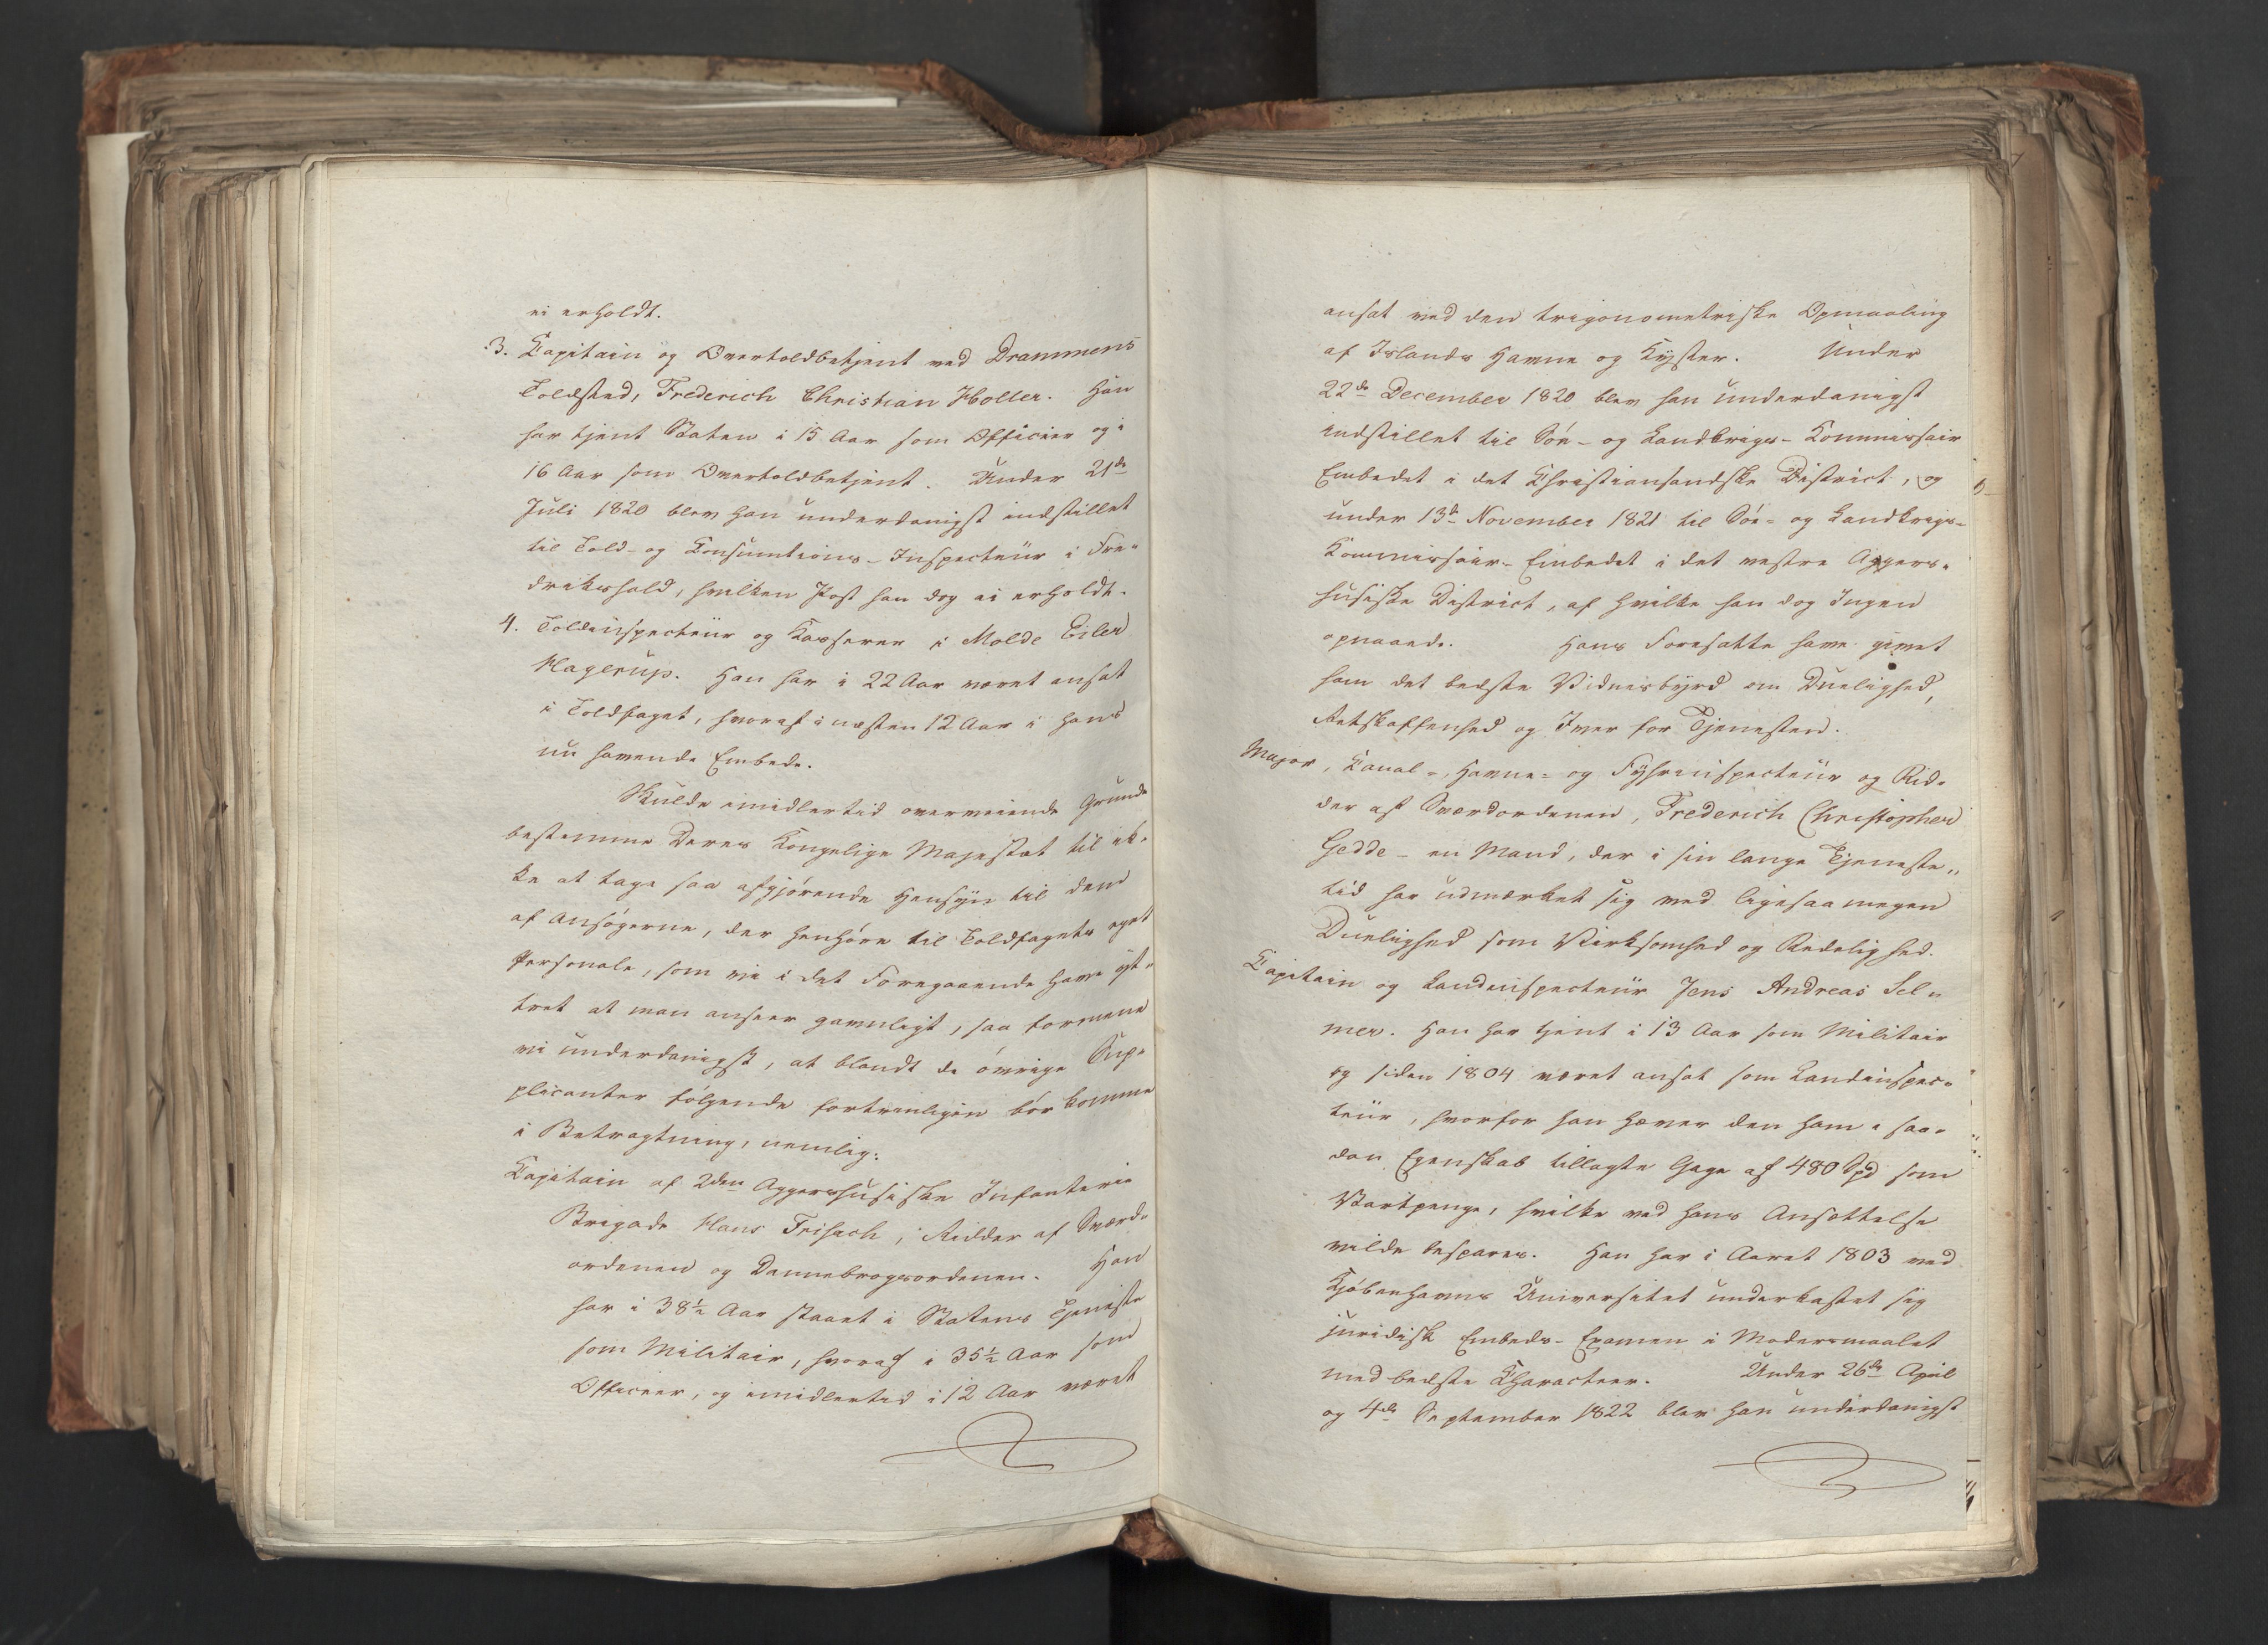 ei erholdt.
3. Capitain og Overtoldbetjent ved Drammens
Toldsted, Frederich Christian Holler. Han
har tjent Staten i 15 Aar som Officier og i
16 Aar som Overtoldbetjent. Under 21de
Juli 1820 blev han underdanigst indstillet
til Told- og Consumtions-Inspecteur i Fre-
drikshald, hvilken Post han dog ei erholdt.
4. Toldinspecteur og Kasserer i Molde Eiler
Hagerup. Han har i 22 Aar været ansat
i Toldfaget, hvoraf i næsten 12 Aar i hans
nu havende Embede.
Skulde imidlertid overveiende Grunde
bestemme Deres Kongelige Majestæt til ik-
ke at tage saa afgjørende Hensyn til dem
af Ansøgerne, der henhøre til Toldfagets eget
Personale, som vi i det Foregaaende have yt-
tret at man anseer gavnligt, saa formene
vi underdanigst, at blandt de øvrige Sup-
plicanter følgende fortrinligen bør komme
i Betragtning, nemlig:
Capitain af 2den Aggershusiske Infanterie
Brigade Hans Frisach, Ridder af Sværd-
ordenen og Dannebrogsordenen. Han
har i 38½ Aar staaet i Statens Tjeneste
som Militair, hvoraf i 35½ Aar som
Officier, og imidlertid i 12 Aar været
ansat ved den trigonometriske Opmaaling
af Islands Havne og Kyster. Under
22de December 1820 blev han underdanigst
indstillet til Søe- og Landkrigs-Kommissair
Embedet i det Christiansandske District, og
under 13de November 1821 til Søe- og Landkrigs-
Kommissair-Embedet i det vestre Aggers-
husiske District, af hvilke han dog Ingen
opnaaede. Hans Foresatte have givet
ham det bedste Vidnesbyrd om Duelighed,
Retskaffenhed og Iver for Tjenesten.
Major, Canal-, Havne- og Fyhrinspecteur og Rid-
der af Sværdordenen, Frederich Christopher
Gedde - en Mand, der i sin lange Tjeneste-
tid har udmærket sig ved ligesaa megen
Duelighed som Virksomhed og Redelighed.
Capitain og Landinspecteur Jens Andreas Sel-
mer. Han har tjent i 13 Aar som Militair
og siden 1804 været ansat som Landinspec-
teur, hvorfor han hæver den ham i saa-
dan Egenskab tillagte Gage af 480 Spd som
Vartpenge, hvilke ved hans Ansættelse
vilde bespares. Han har i Aaret 1803 ved
Kjøbenhavns Universitet underkastet sig
juridisk Embeds-Examen i Modersmaalet
med bedste Character. Under 26de April
og 4de September 1822 blev han underdanigst